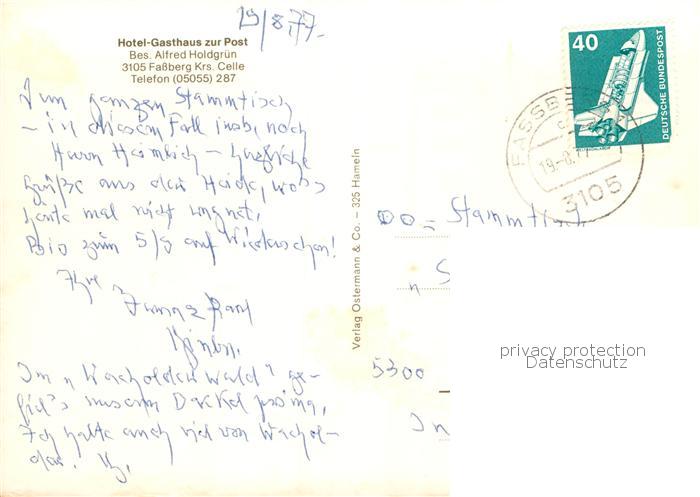 19/8,77.
Hotel-Gasthaus zur Post
Bes. Alfred Holdgrün
3105 Faßberg Krs. Celle
Telefon (05055) 287
ganzen Stammtisch
– in diesem Fall insb. noch
Herrn Heimlich – herzliche
Grüße aus der Heide, wo's
heute mal nicht regnet.
Bis zum 5/9 auf Wiedersehen!
Ihre
Im "Wacholderwald" ge-
fiel's unserm Dackel prima,
Ich halte auch viel von Wachol-
der.
Verlag Ostermann & Co. – 325 Hameln
40
DEUTSCHE BUNDESPOST
FASSBE
19.-8.77
3105
DO = Stammtisch
5300
privacy protection
Datenschutz